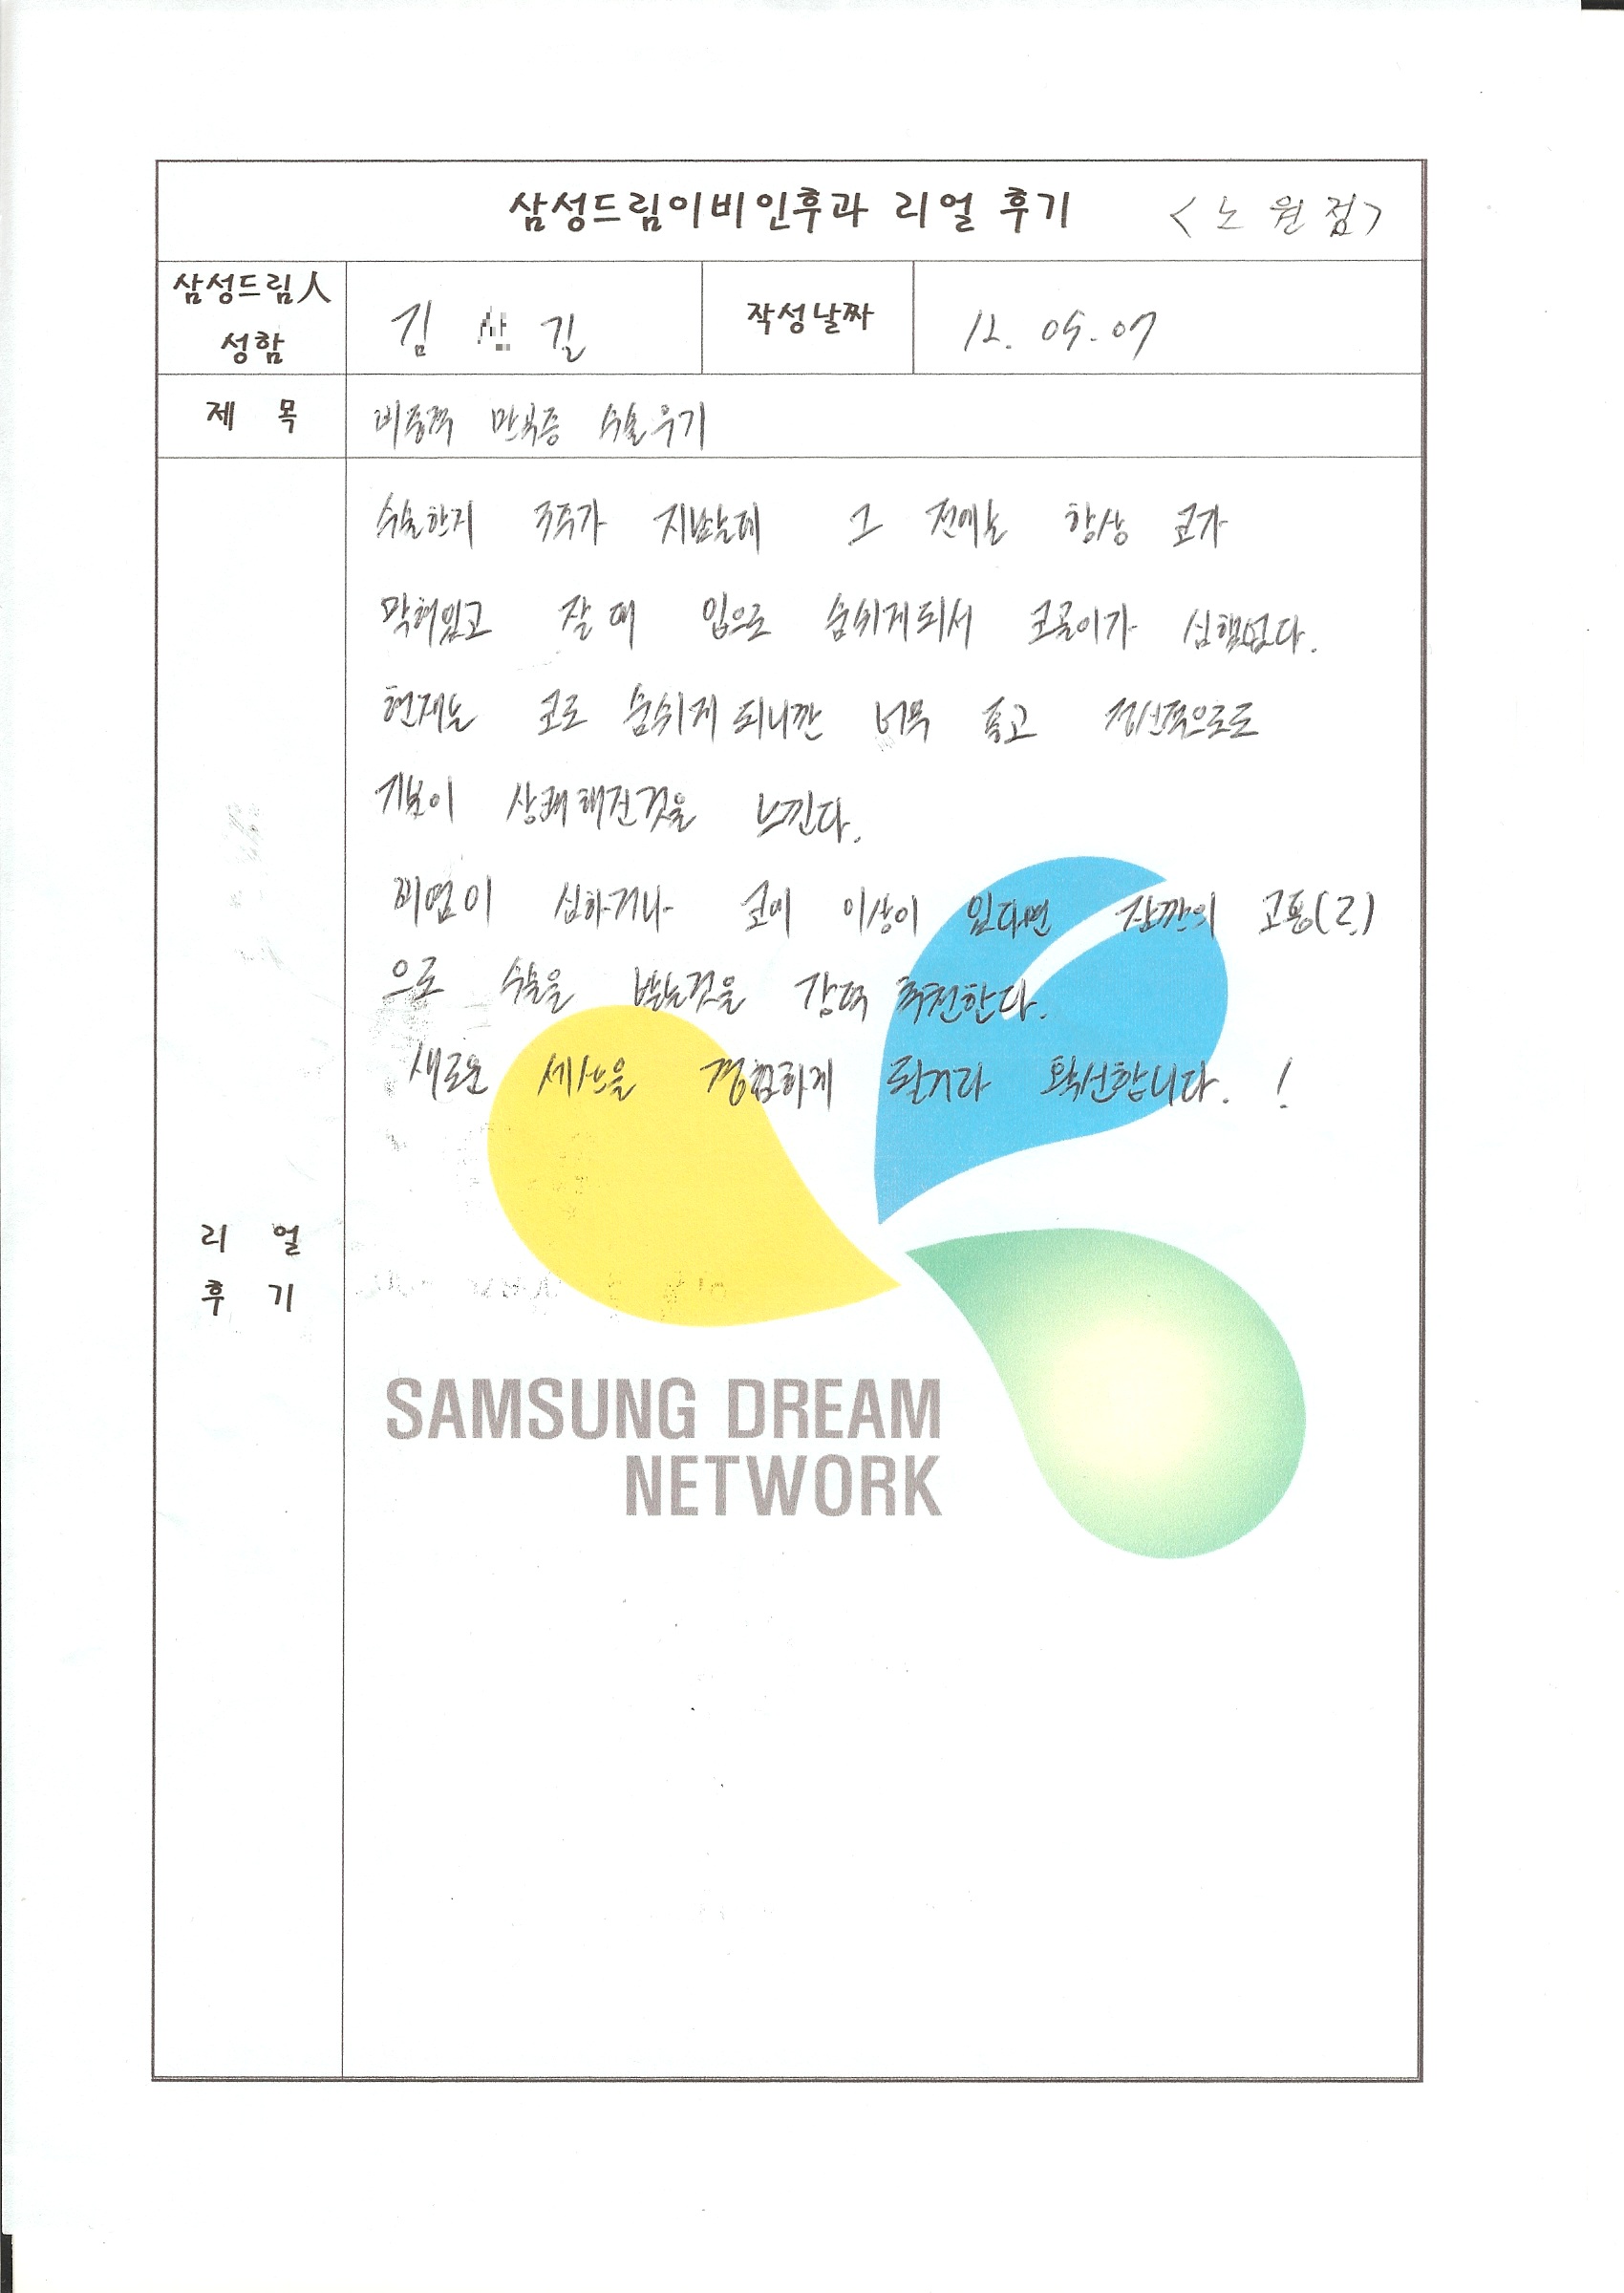 삼성드림이비인후과 리얼 후기 <노원점>
삼성드림人
성함
김 길
작성날짜
12. 05. 07
제 목
비중격 만곡증 수술후기
수술한지 3주가 지났는데 그 전에는 항상 코가
막혀있고 잘때 입으로 숨쉬게되서 코골이가 심했었다.
현재는 코로 숨쉬게 되니깐 너무 좋고 정신적으로도
기분이 상쾌해진것을 느낀다.
비염이 심하거나 코에 이상이 있다면 잠깐의 고통(?)
으로 수술을 받는것을 강력 추천한다.
새로운 세상을 경험하게 될거라 확신합니다. !
리 얼
후 기
SAMSUNG DREAM
NETWORK